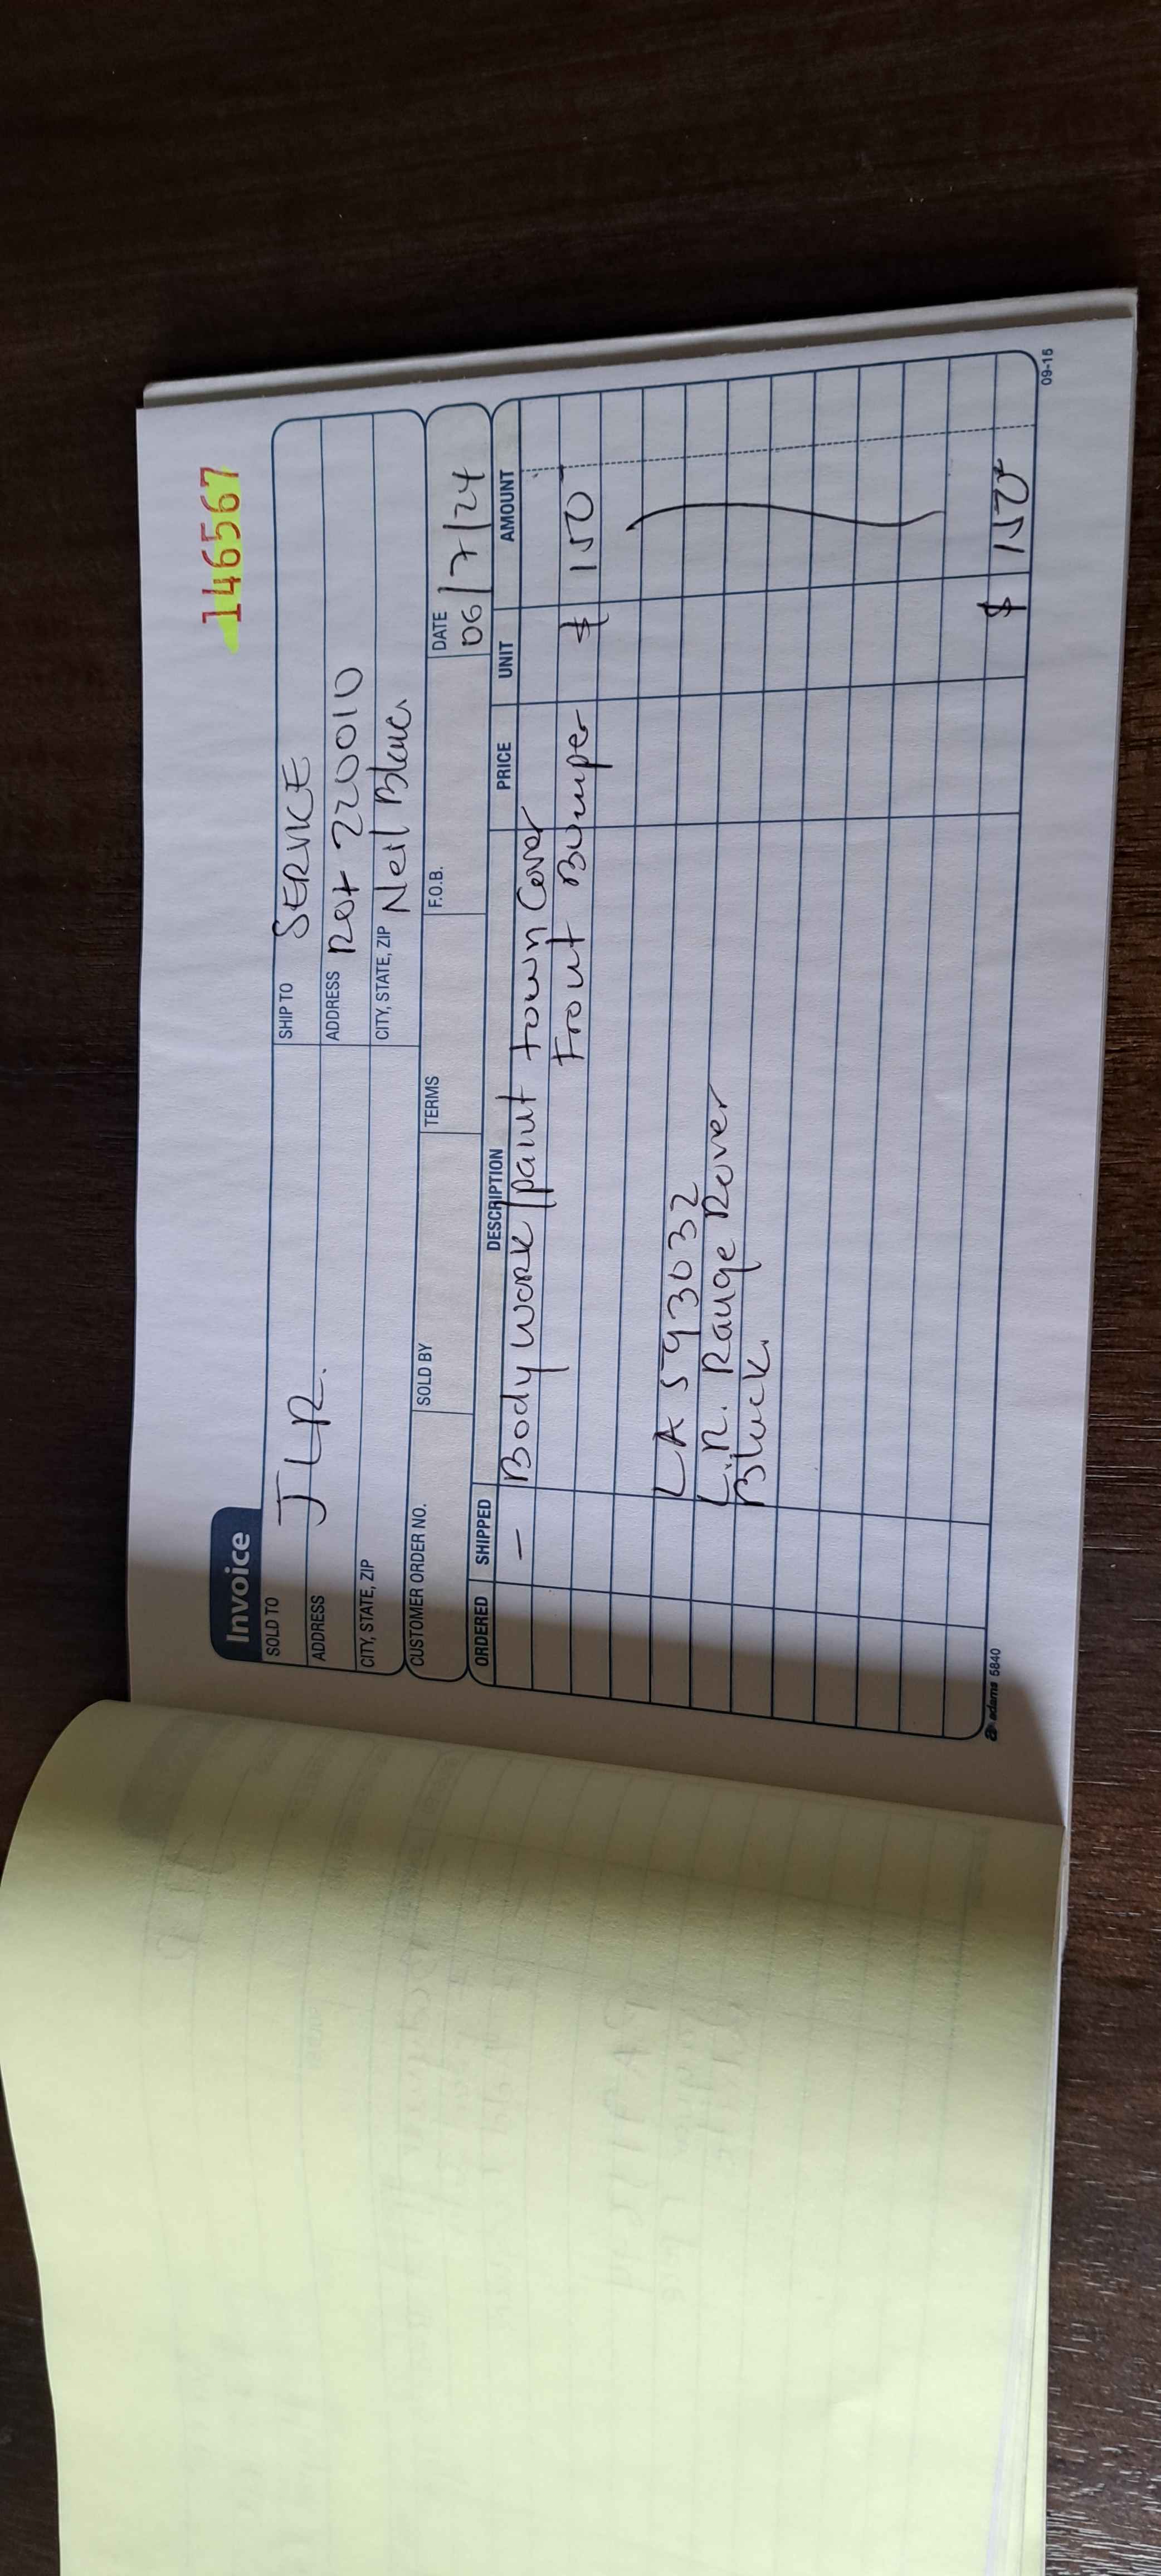 146567
Invoice
SOLD TO JLR. SHIP TO SERVICE
ADDRESS ADDRESS Ro# 220010
CITY, STATE, ZIP CITY, STATE, ZIP Neil Blanc.
CUSTOMER ORDER NO. SOLD BY TERMS F.O.B. DATE 06/7/24
ORDERED SHIPPED DESCRIPTION PRICE UNIT AMOUNT
- Body work/paint town Cover
Front Bumper $ 150
LA 593032
L.R. Range Rover
Black.
$ 150
adams 5840 09-16